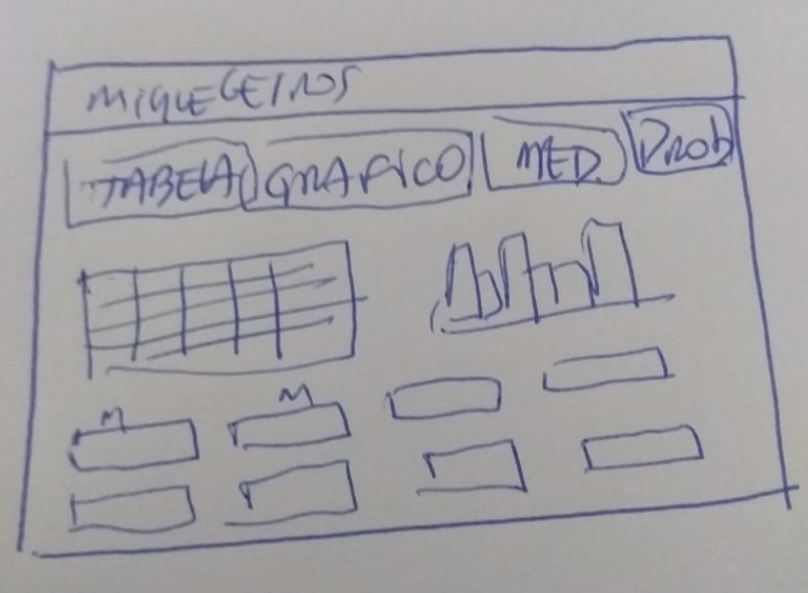 MIQUELEIROS
TABELA GRAFICO MED. Prob
M M